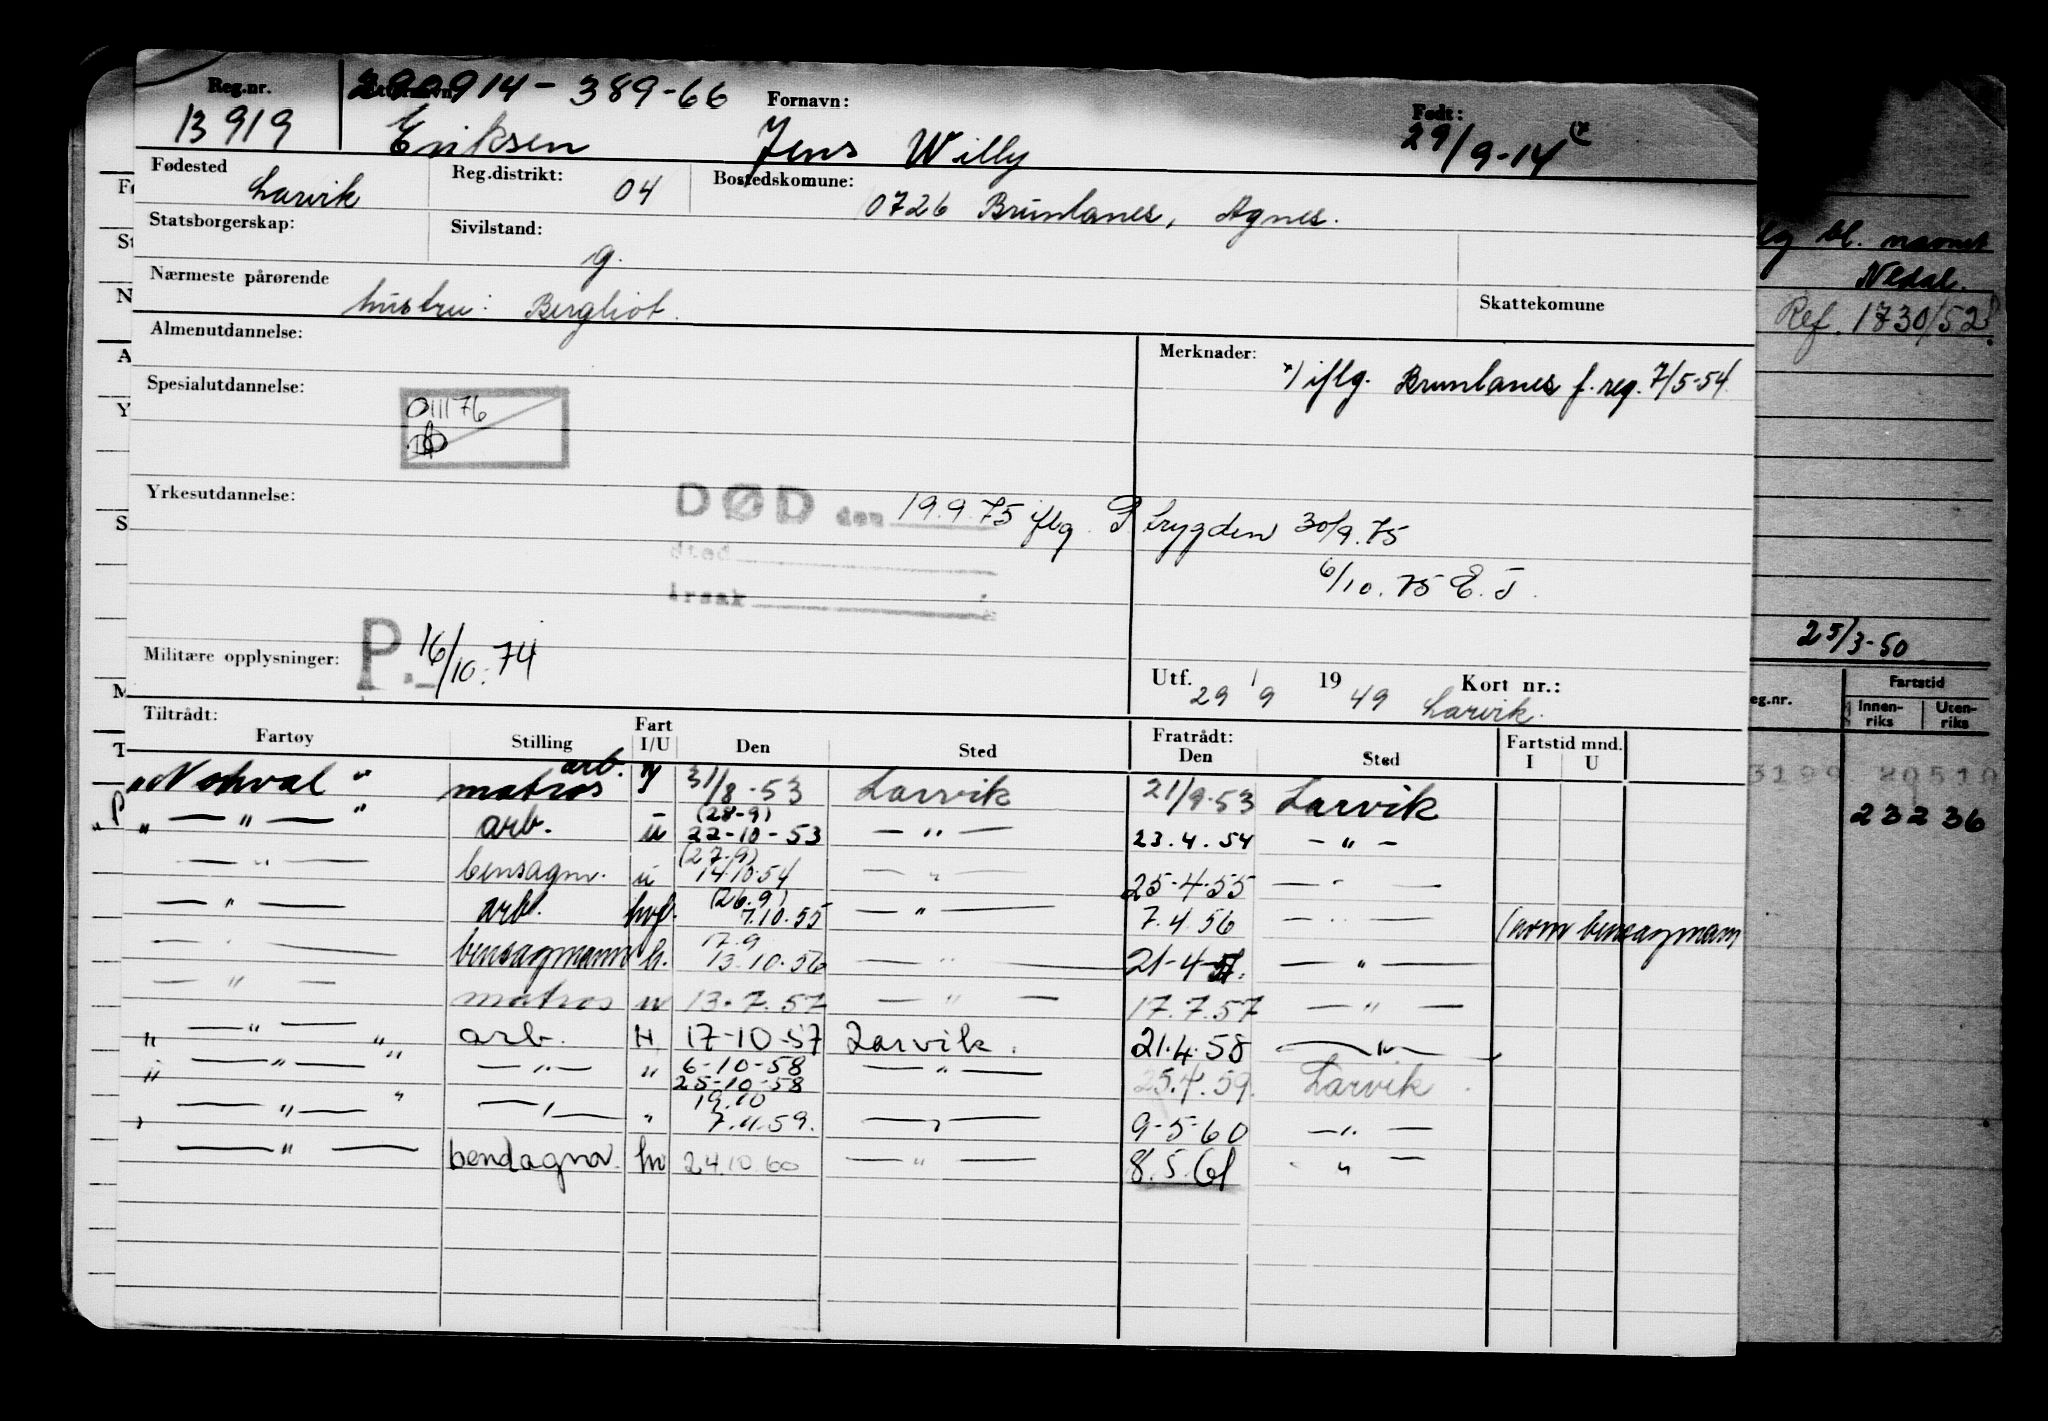 Reg.nr. 290914-389-66 Fornavn: Født:
13919 Eriksen Jens Willy 29/9-14 (*
Fødested Larvik Reg.distrikt: 04 Bostedskomune: 0726 Brunlanes, Agnes.
Statsborgerskap: Sivilstand: g.
Nærmeste pårørende hustru: Bergliot. Skattekomune
Almenutdannelse: Merknader: *) iflg. Brunlanes f.reg. 7/5-54.
Spesialutdannelse: 011176
Yrkesutdannelse: DØD den 19.9.75 iflg. P trygden 30/9.75
sted
6/10.75 E.J.
årsak
Militære opplysninger: P. 16/10.74
Utf. 29/9 1949 Larvik. Kort nr.:
Tiltrådt: Fratrådt: Fartstid mnd.
Fartøy Stilling Fart I/U Den Sted Den Sted I U
"Norhval" matros arb. 31/8-53 Larvik 21/9-53 Larvik
" — " — " arb. u (28-9) 22-10-53 — " — 23.4.54 — " —
— " — bensagm. u (27-9) 14.10.54 — " — 25-4-55 — " —
— " — arb. hvf. (26.9) 7.10.55 — " — 7.4.56 — " — (som bensagmann
— " — bensagmann h. 17.9 13.10.56 — " — 21-4-57. — " —
— " — matros u 13.7.57 — " — 17.7.57 — " —
" — " — " arb. H 17-10-57 Larvik. 21.4.58 — " —
" — " — " — " — " 6-10-58 25-10-58 — " — 25.4.59. Larvik.
" — " — " — " — " 19.10 7.11.59. — " — 9-5-60 — " —
— " — hv 24.10.60 — " — 8.5.61 " —
bl. navnet
Nedal.
Ref. 1730/52
25/3-50
eg.nr. Fartstid
Innen-riks Uten-riks
23236